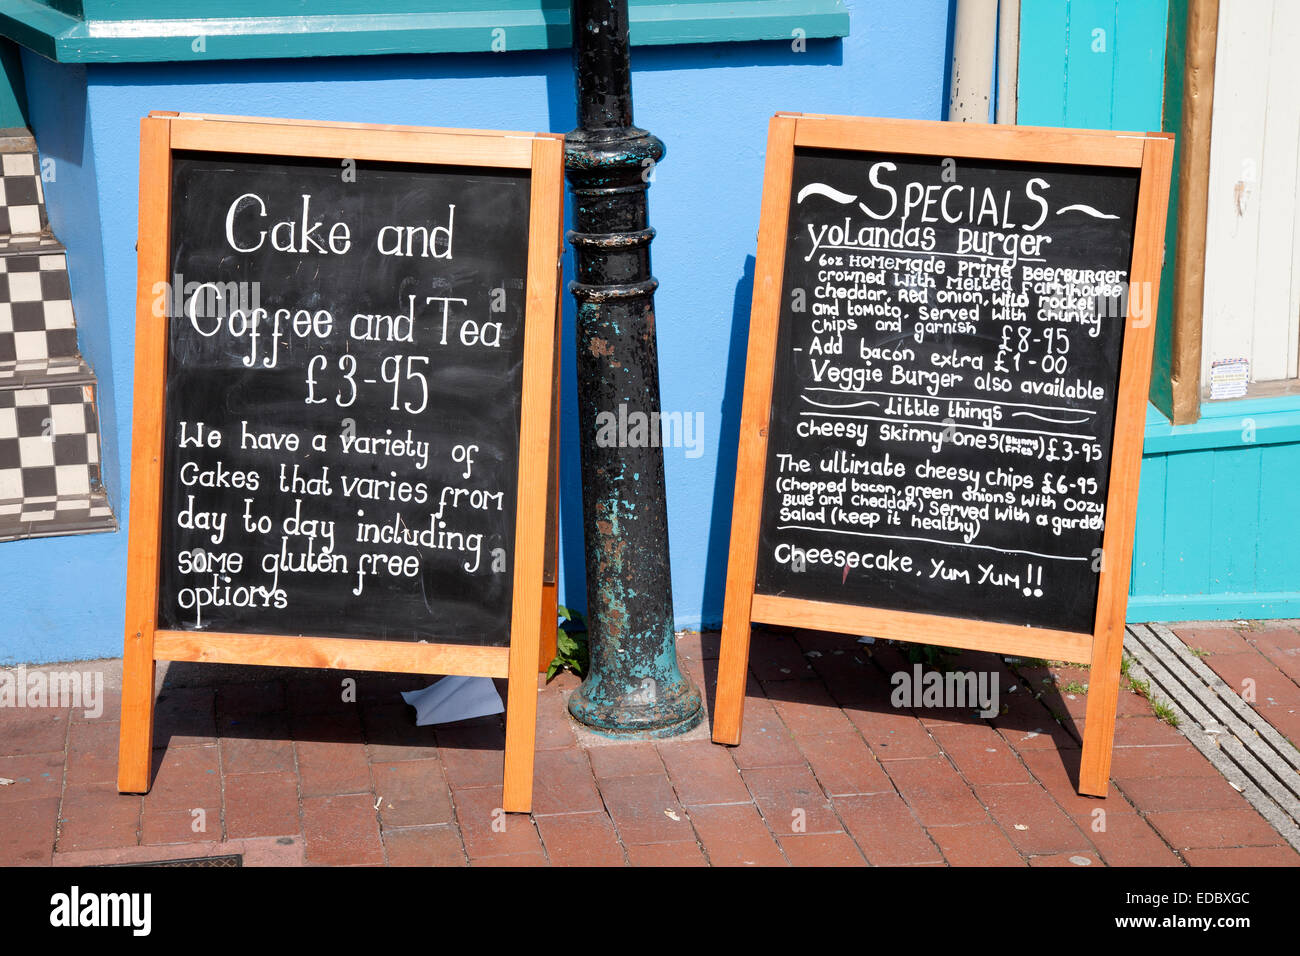 Cake and
Coffee and Tea
£3-95
We have a variety of
Cakes that varies from
day to day including
some gluten free
options
SPECIALS
yoLandas Burger
6oz Homemade prime Beefburger
crowned with melted farmhouse
cheddar, Red onion, wild rocket
and tomato. Served with chunky
chips and garnish £8-95
- Add bacon extra £1-00
Veggie Burger also available
Little things
cheesy skinny ones (Skinny Fries) £3-95
The ultimate cheesy chips £6-95
(Chopped bacon, green onions with oozy
Blue and cheddar) Served with a garden
Salad (keep it healthy)
Cheesecake, Yum Yum!!
alamy
alamy
Image ID: EDBXGC
www.alamy.com